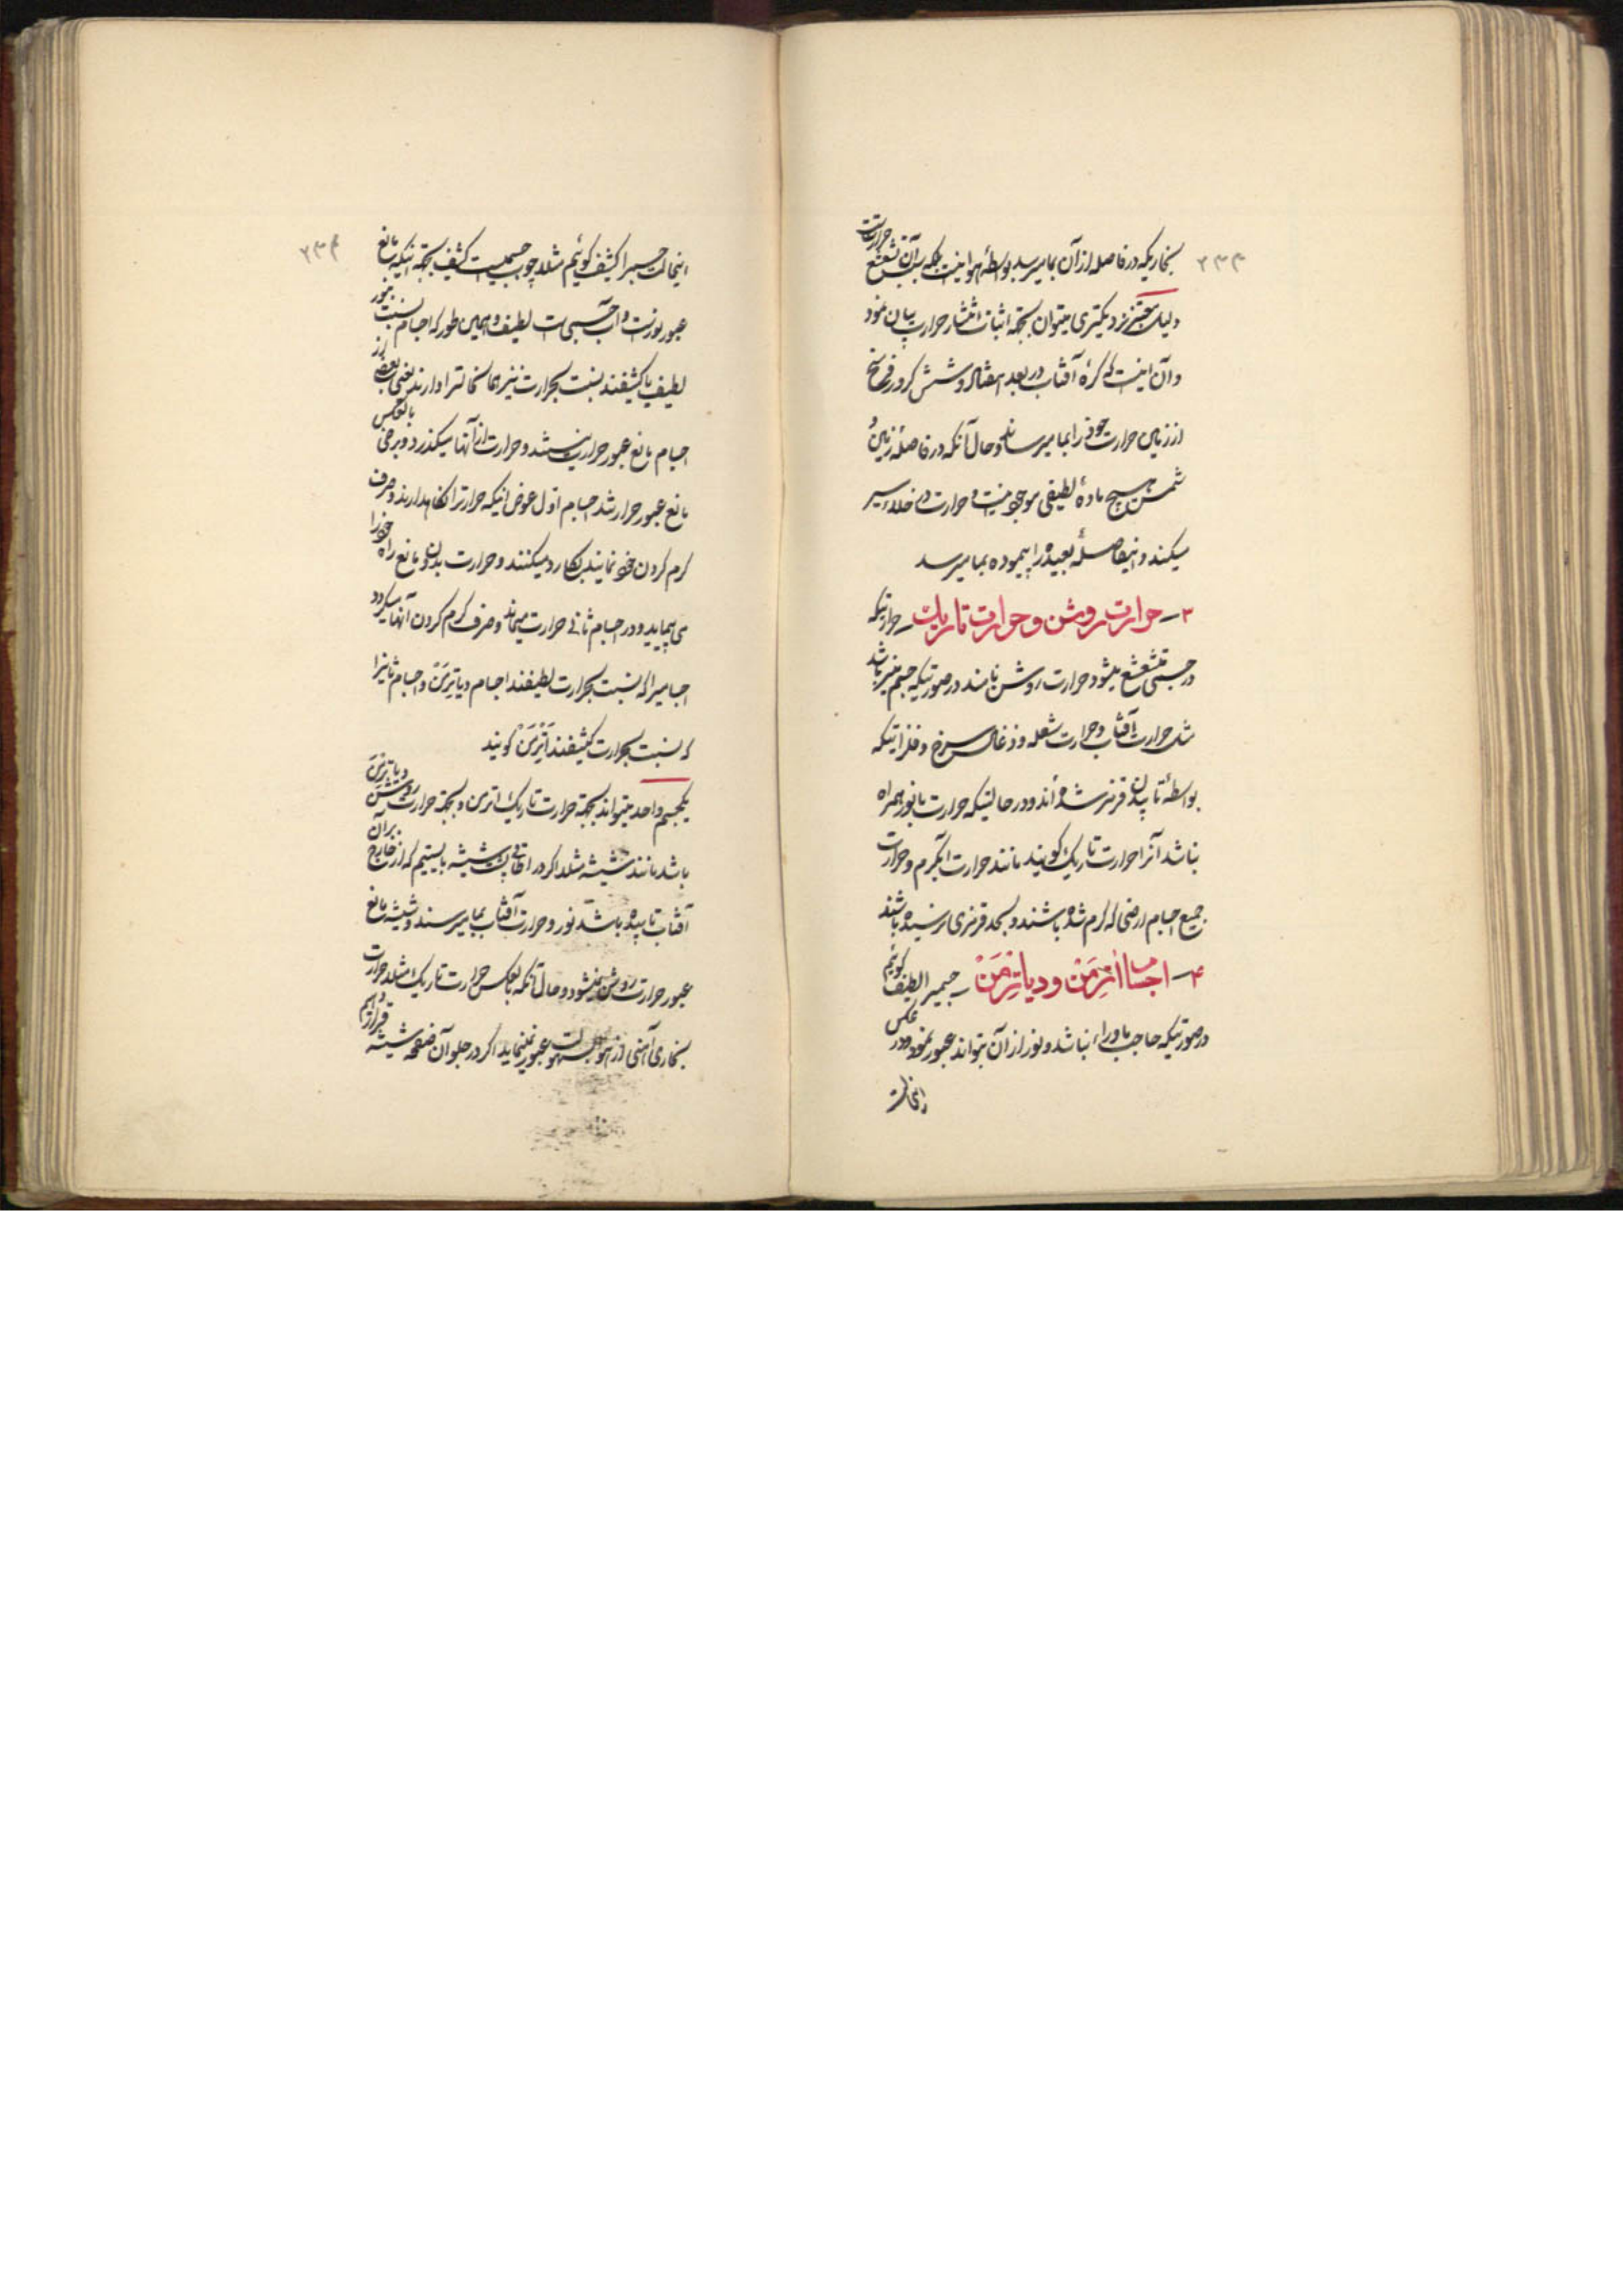 ۲۳۳
بخاریکه در فاصله از آن بما میرسد بواسطهٔ هوا نیست بلکه بسبب تشعشع حرارت آن است
ولیک حجتی نزدیکتری میتوان بجهة اثبات انتشار حرارت بیان نمود
و آن اینست که کرهٔ آفتاب در بعد هفتاد و شش کرور فرسخ
از زمین حرارت خود را بما میرساند و حال آنکه در فاصلهٔ زمین و
شمس هیچ مادهٔ لطیفی موجود نیست و حرارت در خلاء سیر
میکند و اینفاصلهٔ بعیده را پیموده بما میرسد
۳ــ حرارت روشن و حرارت تاریک ــ حرارتیکه
در جسمی متشعشع میشود حرارت روشن نامند در صورتیکه جسم منیر باشد
مثل حرارت آفتاب و حرارت شعله و ذغال سرخ و فلزاتیکه
بواسطهٔ تابیدن قرمز شده‌اند و در حالتیکه حرارت با نور همراه
نباشد آنرا حرارت تاریک گویند مانند حرارت آبگرم و حرارت
جمیع اجسام ارضی که گرم شده باشند و بحد قرمزی نرسیده باشند
۴ــ اجسام اتِرمَنْ و دیاتِرمَنْ ــ جسمیرا لطیف گوئیم
در صورتیکه حاجب ماوراء نباشد و نور از آن بتواند عبور نمود و در عکس
اینحالت
۲۳۴
اینحالت جسم را کثیف گوئیم مثلا چوب جسمیست کثیف بجهة اینکه مانع
عبور نورست و آب جسمی است لطیف و همین طور که اجسام نسبت بنور
لطیف یا کثیفند نسبت بحرارت نیز همان حالترا دارند یعنی بعضی از
اجسام مانع عبور حرارت نیستند و حرارت از آنها میگذرد و برخی بالعکس
مانع عبور حرارتند اجسام اول عوض اینکه حرارترا نگاهدارند و صرف
گرم کردن خود نمایند رد میکنند و حرارت بدون مانع راه خود را
می‌پیماید و در اجسام ثانی حرارت میماند و صرف گرم کردن آنها میگردد
اجسامیرا که نسبت بحرارت لطیفند اجسام دیاتِرمَنْ و اجسام ثانیرا
که نسبت بحرارت کثیفند اَتِرمَنْ گویند
یکجسم واحد میتواند بجهة حرارت تاریک اترمن و بجهة حرارت روشن دیاترمن
باشد مانند شیشه مثلا اگر در اطاقی پشت شیشه بایستیم که از خارج بر آن
آفتاب تابیده باشد نور و حرارت آفتاب بما میرسند و شیشه مانع
عبور حرارت روشن نمیشود و حال آنکه بالعکس حرارت تاریک مثلا حرارت
بخاری آهنی از هوا بسهولت عبور مینماید اگر در جلو آن صفحه شیشه قرار دهیم